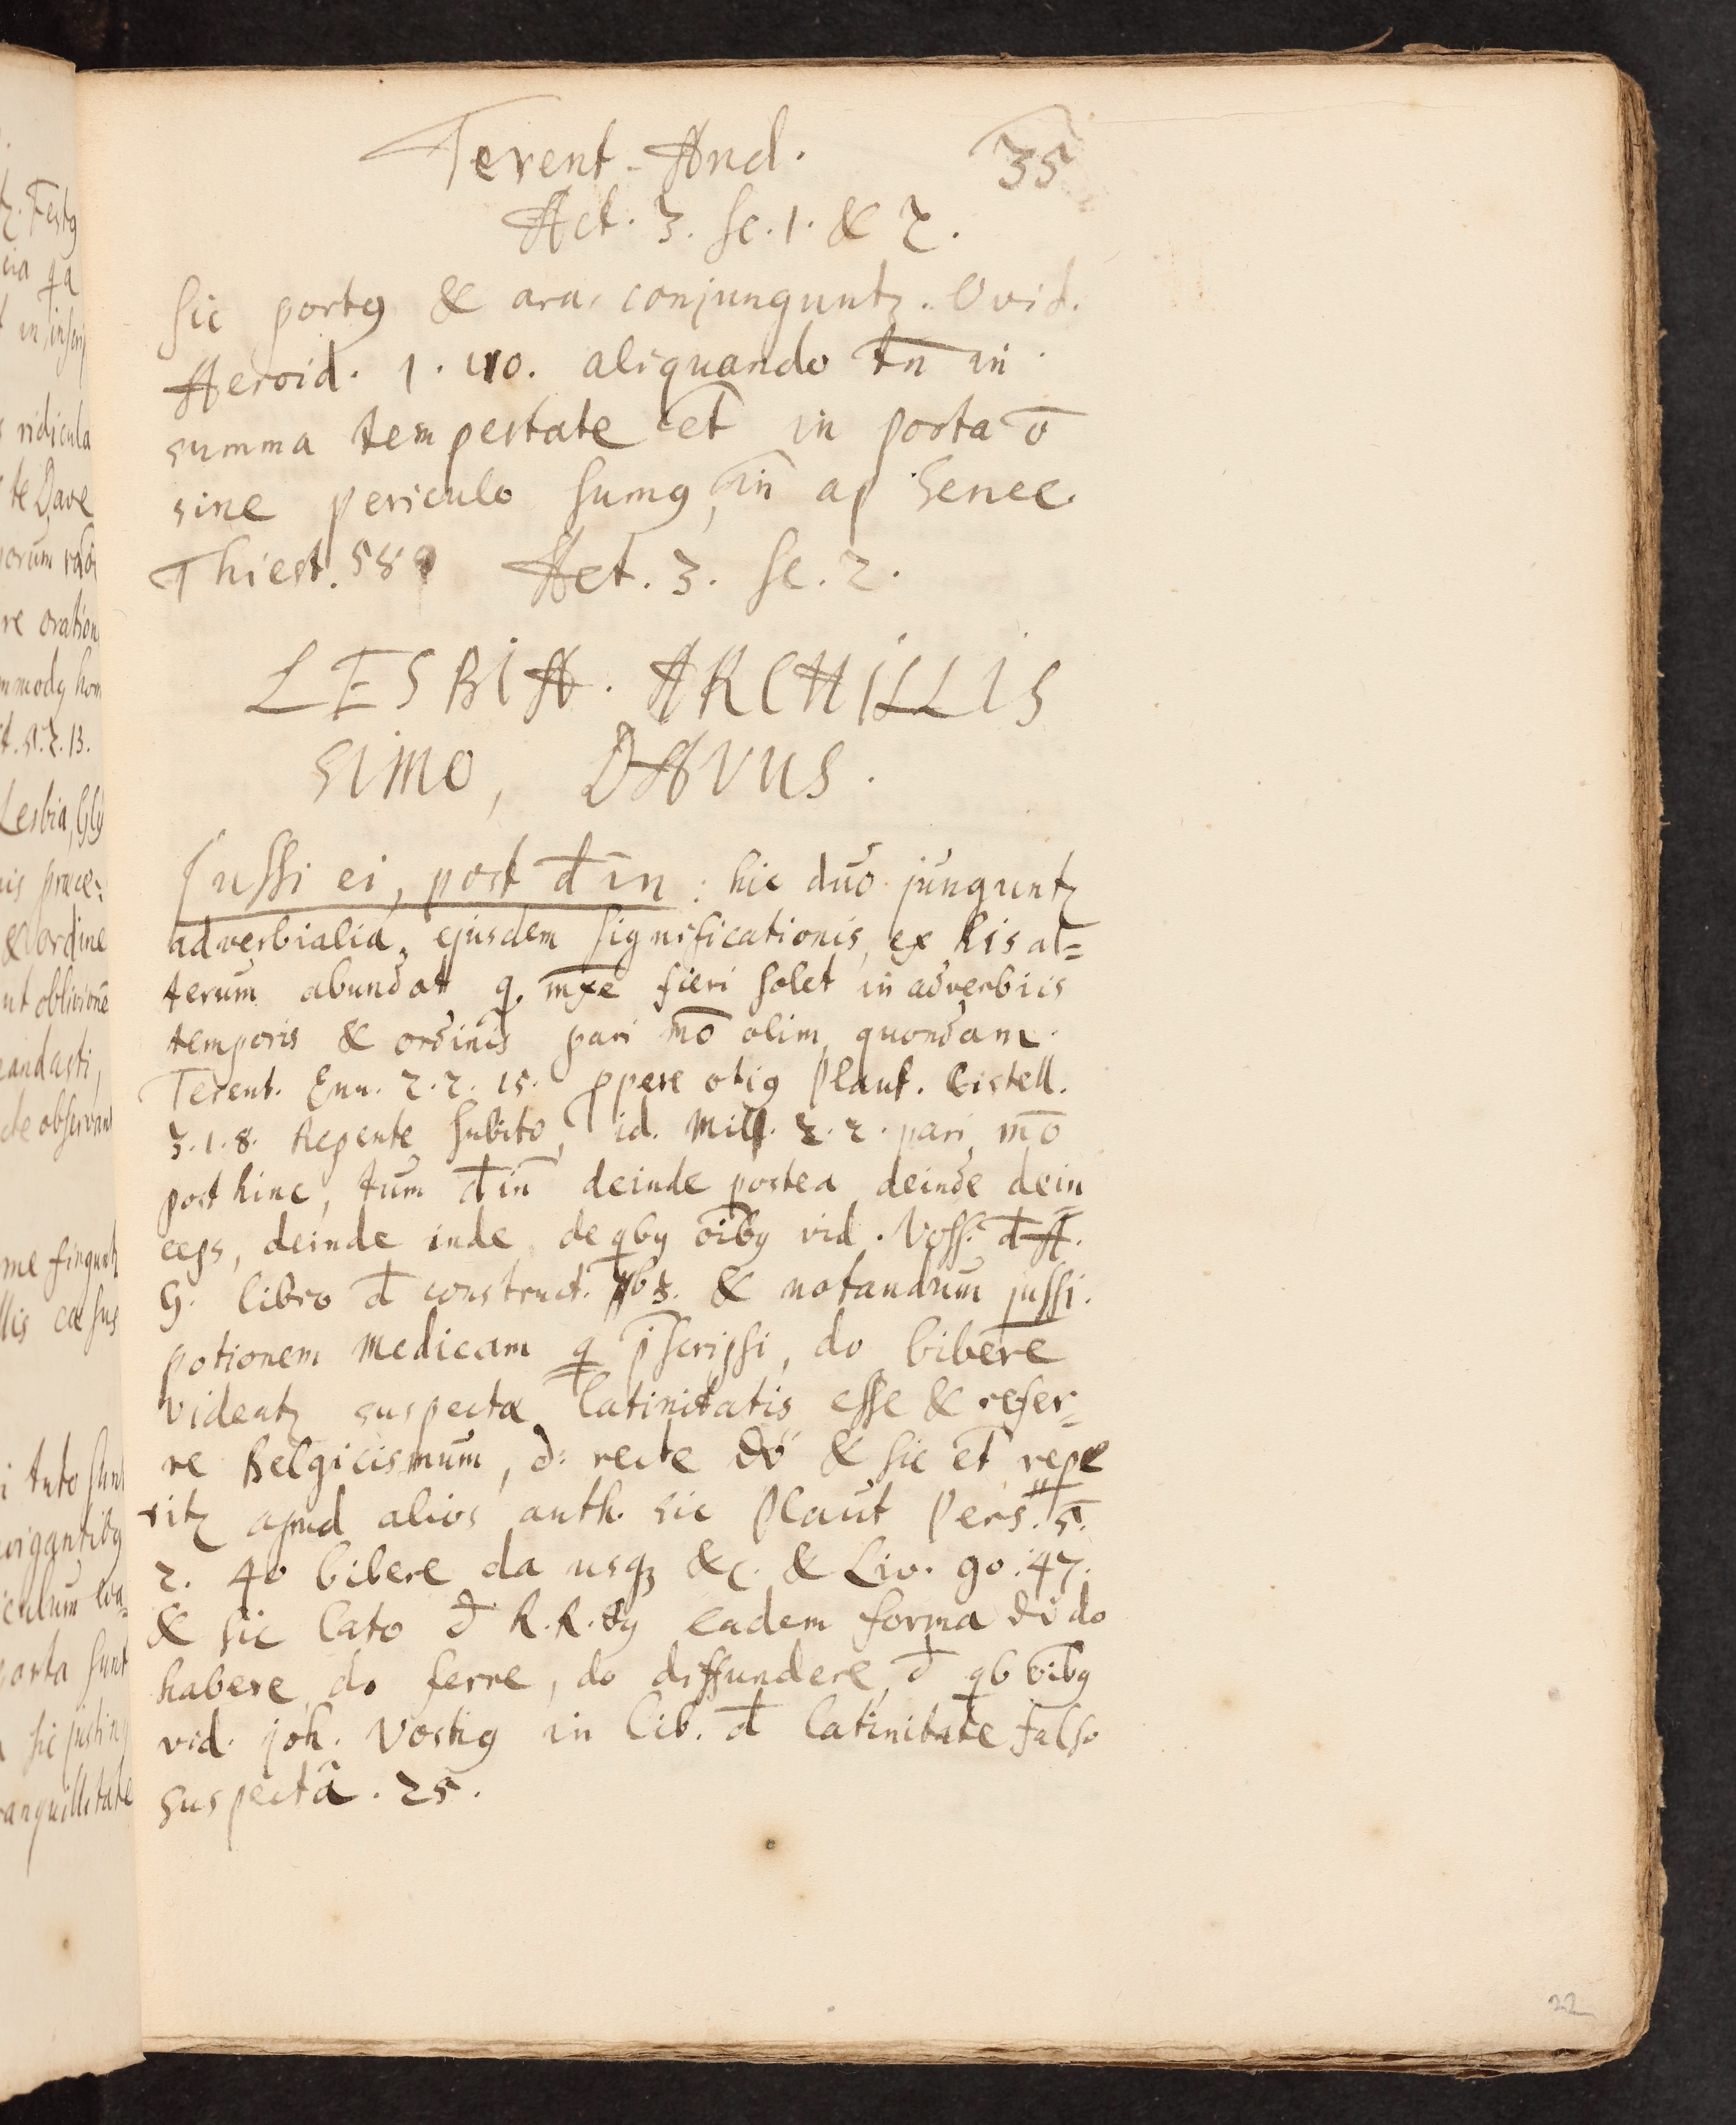 Terent. And. 35
Act. 3. Sc. 1. & 2.
Sic portꝯ & ara conjunguntꝛ. Ovid.
Heroid. 1. 110. aliquando tn̄ in
summa tempestate et̄ in porta ō
sine periculo sumꝯ, ap Senec.
Thiest. 58 Act. 3. Sc. 2.
LESBIA. ARCHILLIS
SIMO, DAVUS.
Jussi ei, post d̄in: hic duo junguntꝛ
adverbialia, ejusdem significationis, ex his al=
terum abundat q. mx̄e fieri solet in adverbiis
temporis & ordinis pari mō olim quondam.
Terent. Eun. 2. 2. 15. ꝓpere otiꝯ Plaut. Cistell.
3. 1. 8. Repente subito, id. Mill. 2. 2. pari mō
post hinc, tum d̄in deinde postea deinde dein=
ceps, deinde inde de qbꝯ oībꝯ vid. Voss. d̄ A.
G. libro d̄ construct. & notandum jussi.
potionem medicam q p̄scripsi, do bibere
videntꝛ suspectæ latinitatis esse & refer=
re Belgicismum, d: recte & sic et̄ repe=
ritꝛ apud alios auth. sic Plaut Pers. 5.
2. 40 bibere da usqꝫ &c. & Liv. 90. 47.
& sic Cato d̄ R. R. 89 eadem forma di do
habere do ferre, do diffundere, d̄ qb oībꝯ
vid. joh. Vostiꝯ in lib. d̄ latinitate falso
suspectâ. 25.
22